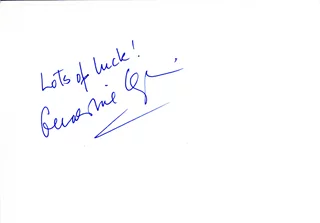 Lots of luck!
Geraldine